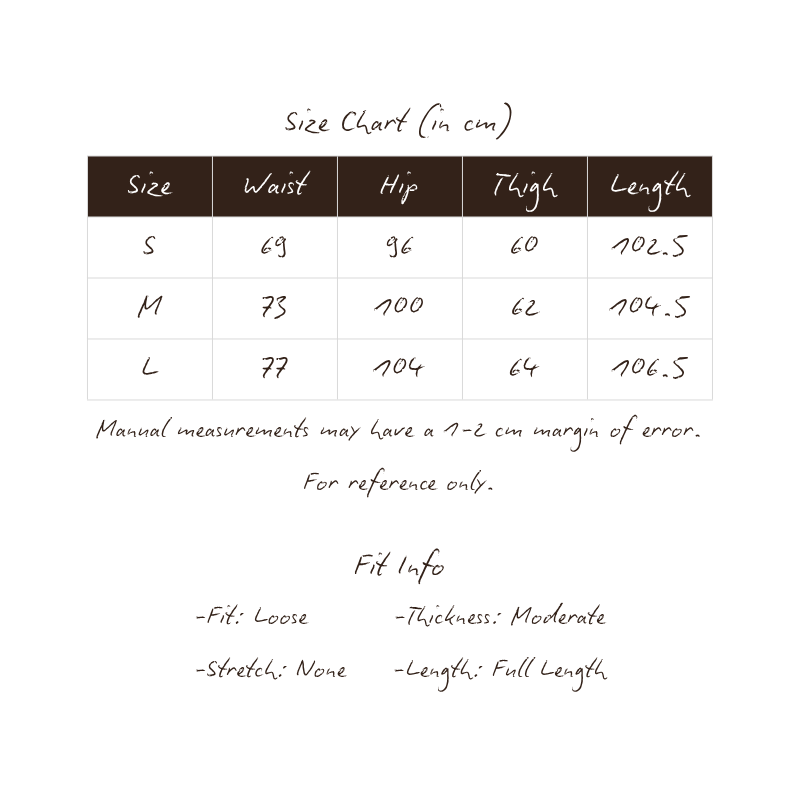 Size Chart (in cm)
Size Waist Hip Thigh Length
S 69 96 60 102.5
M 73 100 62 104.5
L 77 104 64 106.5
Manual measurements may have a 1-2 cm margin of error.
For reference only.
Fit Info
-Fit: Loose -Thickness: Moderate
-Stretch: None -Length: Full Length